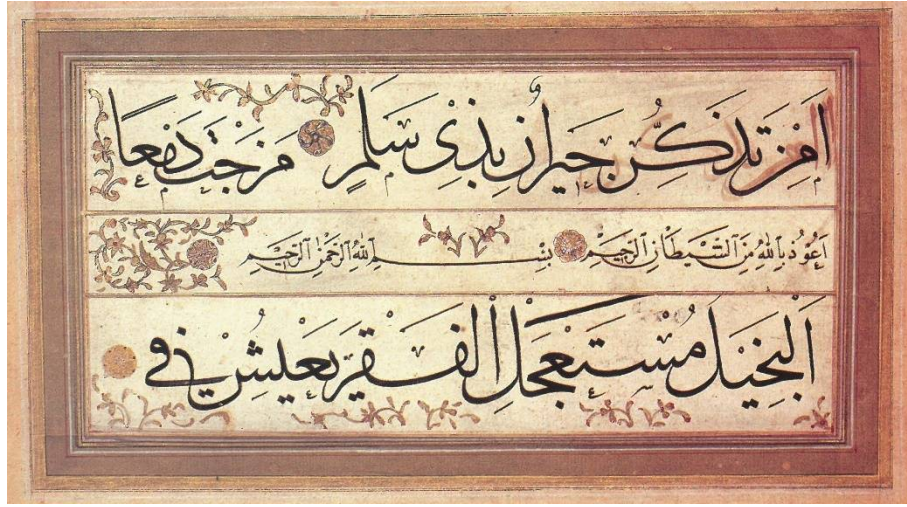 اَمِنْ تَذَكُّرِ جِيرَانٍ بِذِي سَلَمٍ مَزَجْتَ دَمْعًا
اَعُوذُ بِاللهِ مِنَ الشَّيْطَانِ الرَّجِيْمِ بِسْمِ اللهِ الرَّحْمٰنِ الرَّحِيْمِ
اَلْبَخِيْلُ مُسْتَعْجِلُ الْفَقْرِ يَعِيْشُ فِي